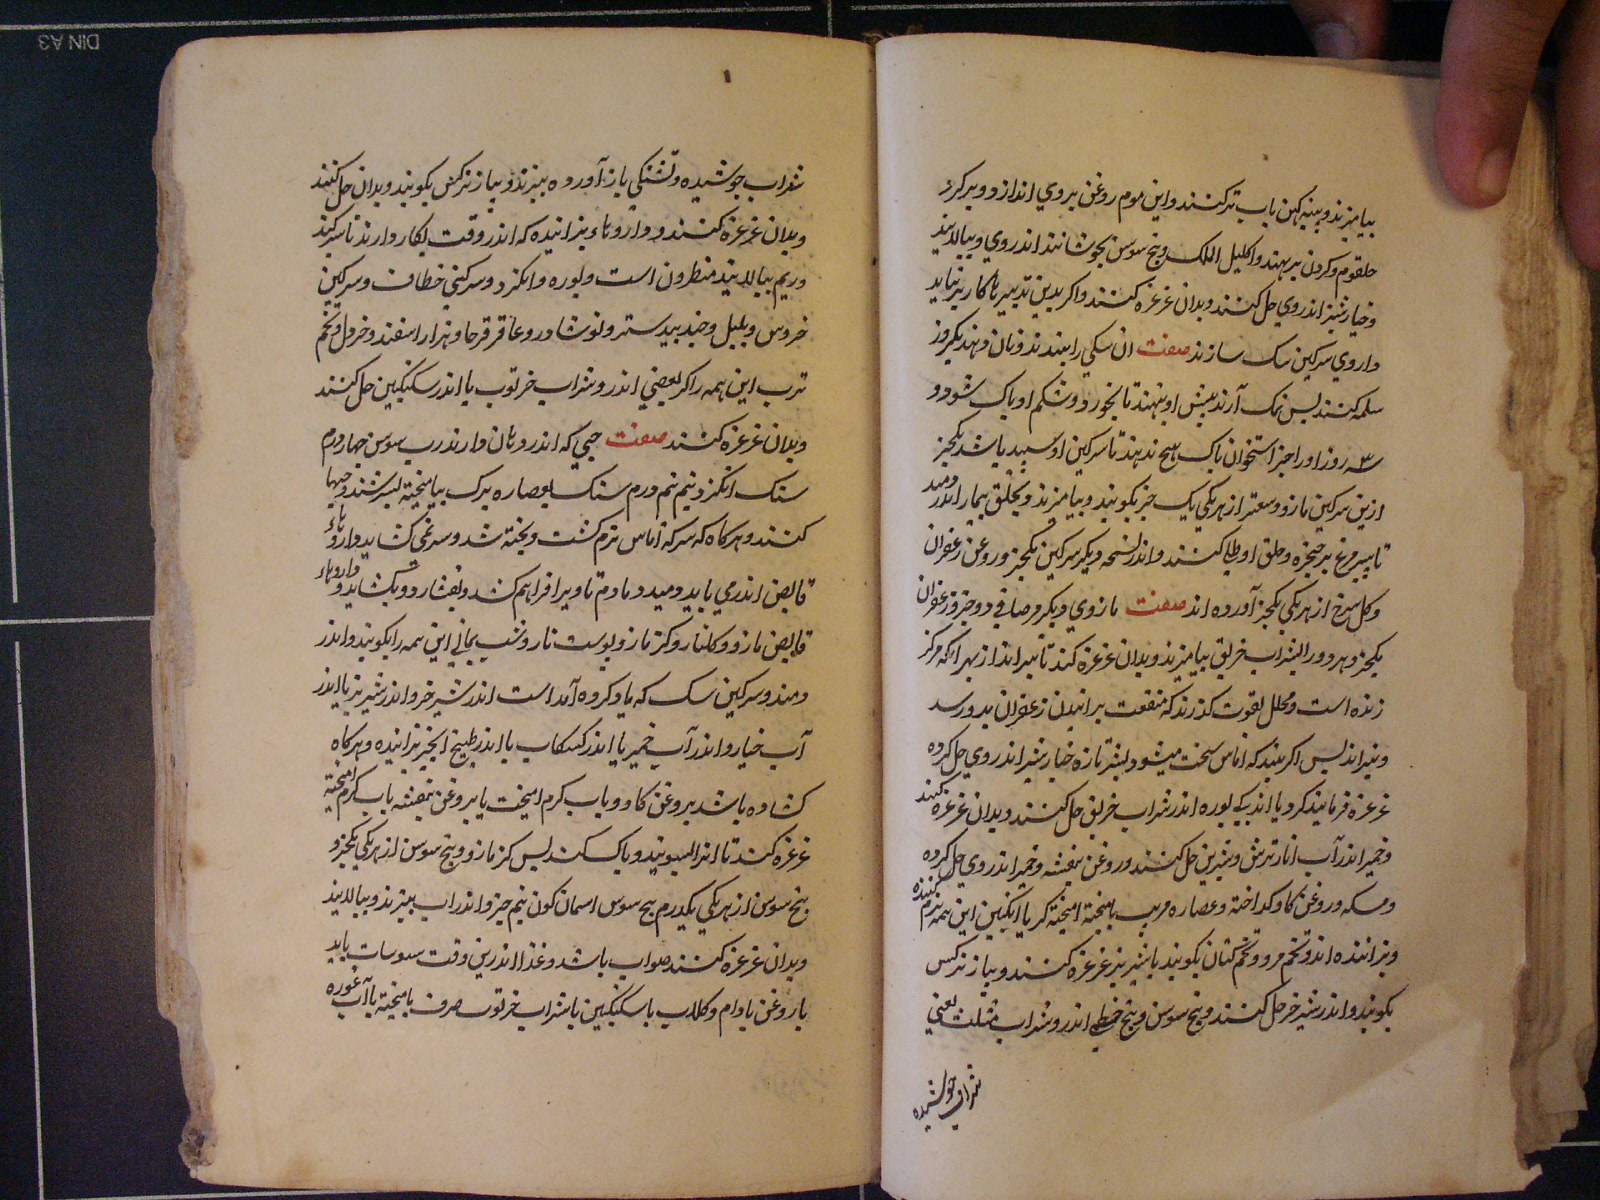 بیامیزند و پنبه کهن باب تر کنند و این موم روغن بروی اندازد و بر کرد
حلقوم و کردن بر نهند و اکلیل الملک و بیخ سوسن بجوشانند اندر وی و بپالایند
و خیارشنبر اندر وی حل کنند و بدان غرغره کنند و اکر بدین تدبیر ها کار برنیاید
داروی سرکین سک سازند صفت ان سکی را ببندند و نان و
کنند پس نمک آرند پیش او بنهند تا بخورد و شکم او پاک شود و
سه روز او را جز استخوان پاک هیچ ندهند تا سرکین او سپید باشد یکجز
ازین سرکین مازو و سعتر از هر یکی یک جز بکوبند و بیامیزند و بحلق بیمار اندر دمید
تا بپر مرغ بر حنجره و حلق او طلا کنند و اندر نسخه دیکر سرکین یکجز و روغن زعفران
و کل سرخ از هر یکی یکجز آورده اند صفت مازوی دیکر مر صافی دو جز و زعفران
یکجز و هر دو را بشراب خرنق بیامیزند و بدان غرغره کند تا ببر اند از بهر انکه مر کز
زنده است و محلل بقوت کذرند که منفعت برانیدن زعفران بدو رسد
و بنیر اند پس اکر بیند که اماس سخت میشود بشیر تازه خیارشنبر اندر وی حل کرده
غرغره فرمایند کرد یا اندکی بوره اندر شراب خرنق حل کنند و بدان غرغره کنند
و خمیر اندر آب انار ترش و شیرین حل کنند و روغن بنفشه و خمیر اندر وی حل کرده
و مسکه و روغن کاو کداخته و عصاره بامیخته کر با انکبین این همه نرم کننده
و بزاننده اند و تخم مرو و تخم کتان بکوبند با شیر بز غرغره کنند و پیاز نرکس
بکوبند و اندر شیر خر حل کنند و بیخ سوسن و بیخ خطمی اندر و شراب مثلث یعنی
شراب جوشیده
شراب جوشیده و تشنکی باز آورده ببزند و پیاز نرکس بکوبند و بدان حل کنند
و بدان غرغره کنند و داروهاء بزاننده که اندر وقت بکار دارند تا سر کند
و ریم بپالایند نطرون است و بوره و انکزد و سرکین خطاف و سرکین
خروس و پلپل و جند بیدستر و نوشادر و عاقرقرحا و هزار اسفند و خردل و تخم
ترب این همه را اکر بعضی اندر و شراب خرتوب یا اندر سکنکبین حل کنند
و بدان غرغره کنند صفت حبی که اندر دهان دارند رب سوس چهار درم
سنک انکزد نیم نیم درم سنک بعصاره برک بیامیخته بسرشند و حبها
کنند و هرکاه که سر که اماس نرم کشت و پخته شد و سر نمی کشاید داروهاء
قابض اندر می باید دمید و مادم تا ویرا فراهم کشد و بفشارد و بکشاید و داروهاء
قابض مازو و کلنار و کزمازو و پوست نار و شب یمانی این همه را بکوبند و اندر
دمند و سرکین سک که یاد کرده آمد است اندر شیر خر و اندر شیر بز یا اندر
آب خیار و اندر آب خمیر یا اندر کشکاب یا اندر طبیخ انجیر بزانیده و هرکاه
کشاده باشد بروغن کاو و باب کرم امیخت یا بروغن بنفشه باب کرم امیخته
غرغره کند تا انرا بشوید و پاک کند پس کزمازو و بیخ سوسن از هر یکی یکجز و
بیخ سوسن از هر یکی یکدرم بیخ سوس اسمان کون نیم جز و اندر اب ببزند و بپالایند
و بدان غرغره کنند صواب باشد و غذا اندرین وقت سبوساب باید
با روغن بادام و کلاب با سکنکبین یا شراب خرتوب صرف یا میخته یا آب غوره